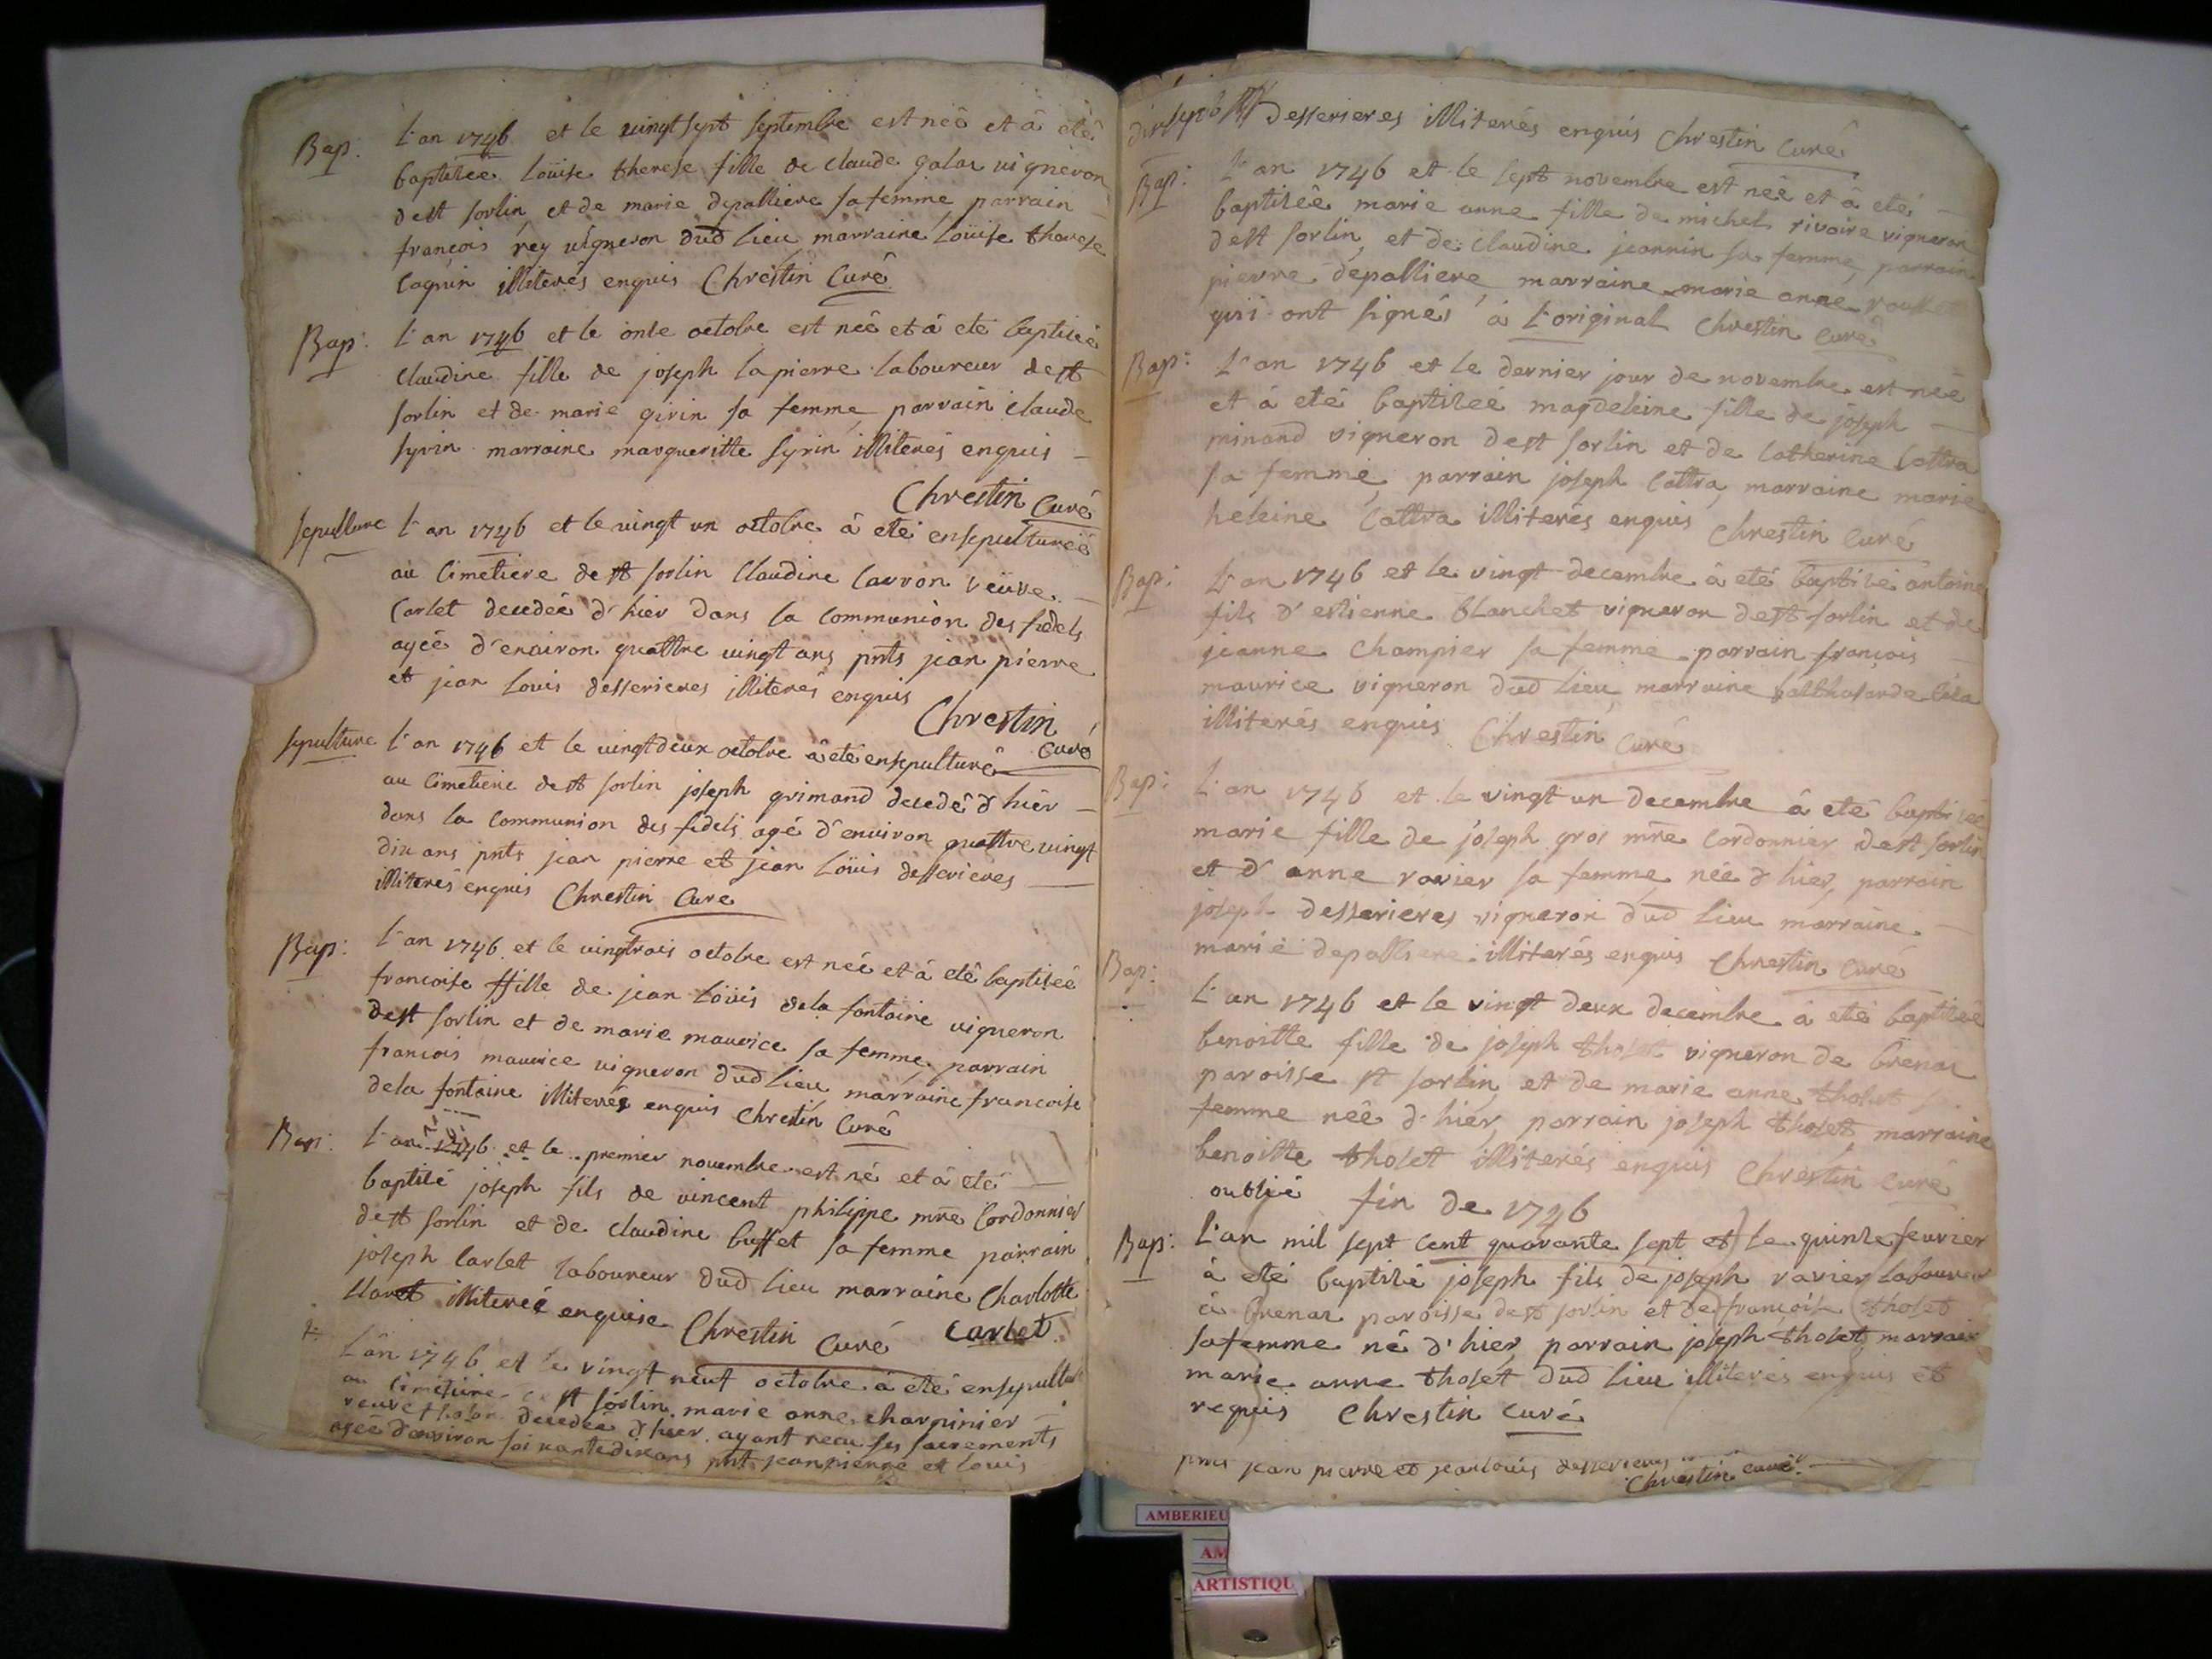 Bap: L'an 1746 et le vingt sept septembre est née et à eté
baptisée Loüise therese fille de claude galas vigneron
de st sorlin, et de marie depalliere sa femme, parrain
françois rey vigneron dud lieu, marraine Loüise therese
Coquin illiterés enquis Chrestin Curé
Bap: L'an 1746 et le onse octobre est née et à eté baptisée
claudine fille de joseph lapierre laboureur de st
sorlin et de marie girin sa femme, parrain claude
syrin marraine margueritte syrin illiterés enquis
Chrestin Curé
sepulture L'an 1746 et le vingt un octobre à eté ensepulturée
au Cimetiere de st sorlin Claudine Carron veüve
Carlet decedée d'hier dans la Communion des fidels
agée d'environ quattre vingt ans pnts jean pierre
et jean Louis desserieres illiterés enquis
Chrestin Curé
sepulture L'an 1746 et le vingt deux octobre à eté ensepulturé
au Cimetiere de st sorlin joseph grimand decedé d'hier
dans la Communion des fidels agé d'environ quattre vingt
dix ans pnts jean pierre et jean Loüis desserieres
illiterés enquis Chrestin Curé
Bap: L'an 1746 et le vingtrois octobre est née et à eté baptisée
francoise fille de jean Loüis dela fontaine vigneron
de st sorlin et de marie maurice sa femme, parrain
francois maurice vigneron dud lieu, marraine francoise
dela fontaine illiterés enquis Chrestin Curé
Bap: L'an 1746 et le premier novembre est né et à eté
baptisé joseph fils de vincent philippe mre Cordonnier
de st sorlin et de Claudine buffet sa femme parrain
joseph Carlet laboureur dud lieu marraine Charlotte
illiterée enquise Chrestin Curé Carlet
L'an 1746 et le vingt neuf octobre à eté ensepulturée
au cimetiere de st sorlin marie anne charpinier
veuve decedée d'hier ayant recu ses sacrements
agée d'environ soixante dix ans pnt jean pierre et Louis
desserieres illiterés enquis Chrestin Curé
Bap: L'an 1746 et le sept novembre est née et à eté
baptisée marie anne fille de michel rivoire vigneron
de st sorlin, et de claudine jeannin sa femme, parrain
pierre depalliere, marraine marie anne
qui ont signés à L'original Chrestin Curé
Bap: L'an 1746 et le dernier jour de novembre est née
et à eté baptisée magdeleine fille de joseph
minand vigneron de st sorlin et de Catherine Cattra
sa femme, parrain joseph Cattra, marraine marie
heleine Cattra illiterés enquis Chrestin Curé
Bap: L'an 1746 et le vingt decembre à eté baptisé antoine
fils d'estienne blanchet vigneron de st sorlin et de
jeanne Champier sa femme parrain françois
maurice vigneron dud lieu, marraine balthasarde
illiterés enquis Chrestin Curé
Bap: L'an 1746 et le vingt un decembre à eté baptisée
marie fille de joseph gros mre Cordonnier de st sorlin
et d'anne ravier sa femme née d'hier, parrain
joseph desserieres vigneron dud lieu marraine
marie depalliere illiterés enquis Chrestin Curé
Bap: L'an 1746 et le vingt deux decembre à eté baptisée
benoitte fille de joseph tholet vigneron de brenas
paroisse st sorlin, et de marie anne tholet
femme née d'hier, parrain joseph tholet, marraine
benoitte tholet illiterés enquis Chrestin Curé
oublié fin de 1746
Bap: L'an mil sept cent quarante sept et le quinse fevrier
à eté baptisé joseph fils de joseph ravier laboureur
à brenas paroisse de st sorlin et de françoise tholet
sa femme né d'hier, parrain joseph tholet, marraine
marie anne tholet dud lieu illiterés enquis et
requis Chrestin Curé
pnts jean pierre et jean louis desserieres
Chrestin curé
AMBERIEU
AM
ARTISTIQU